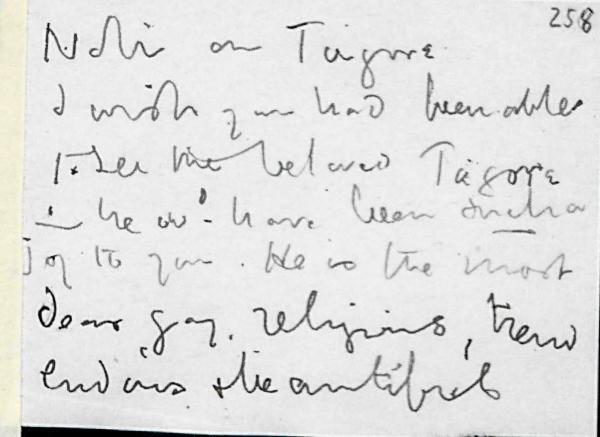 258
Note on Tagore
I wish you had been able
to see the beloved Tagore
he wd have been such a
Joy to you. He is the most
dear, gay, religious, trem
endous & beautiful